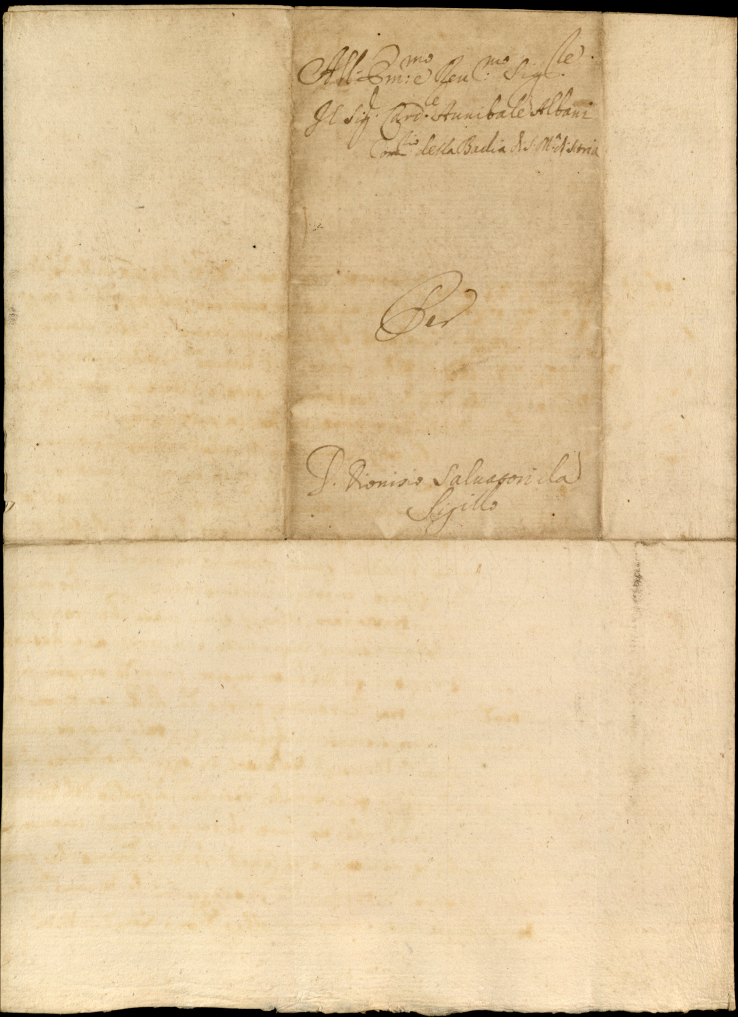 All: Em:mo e Reu:mo Sig:
Il Sig. Card.le Annibale Albani
Com:rio della Badia di S. M.a di Sitria
Per
D. Dionisio Saluatori da
Sigillo